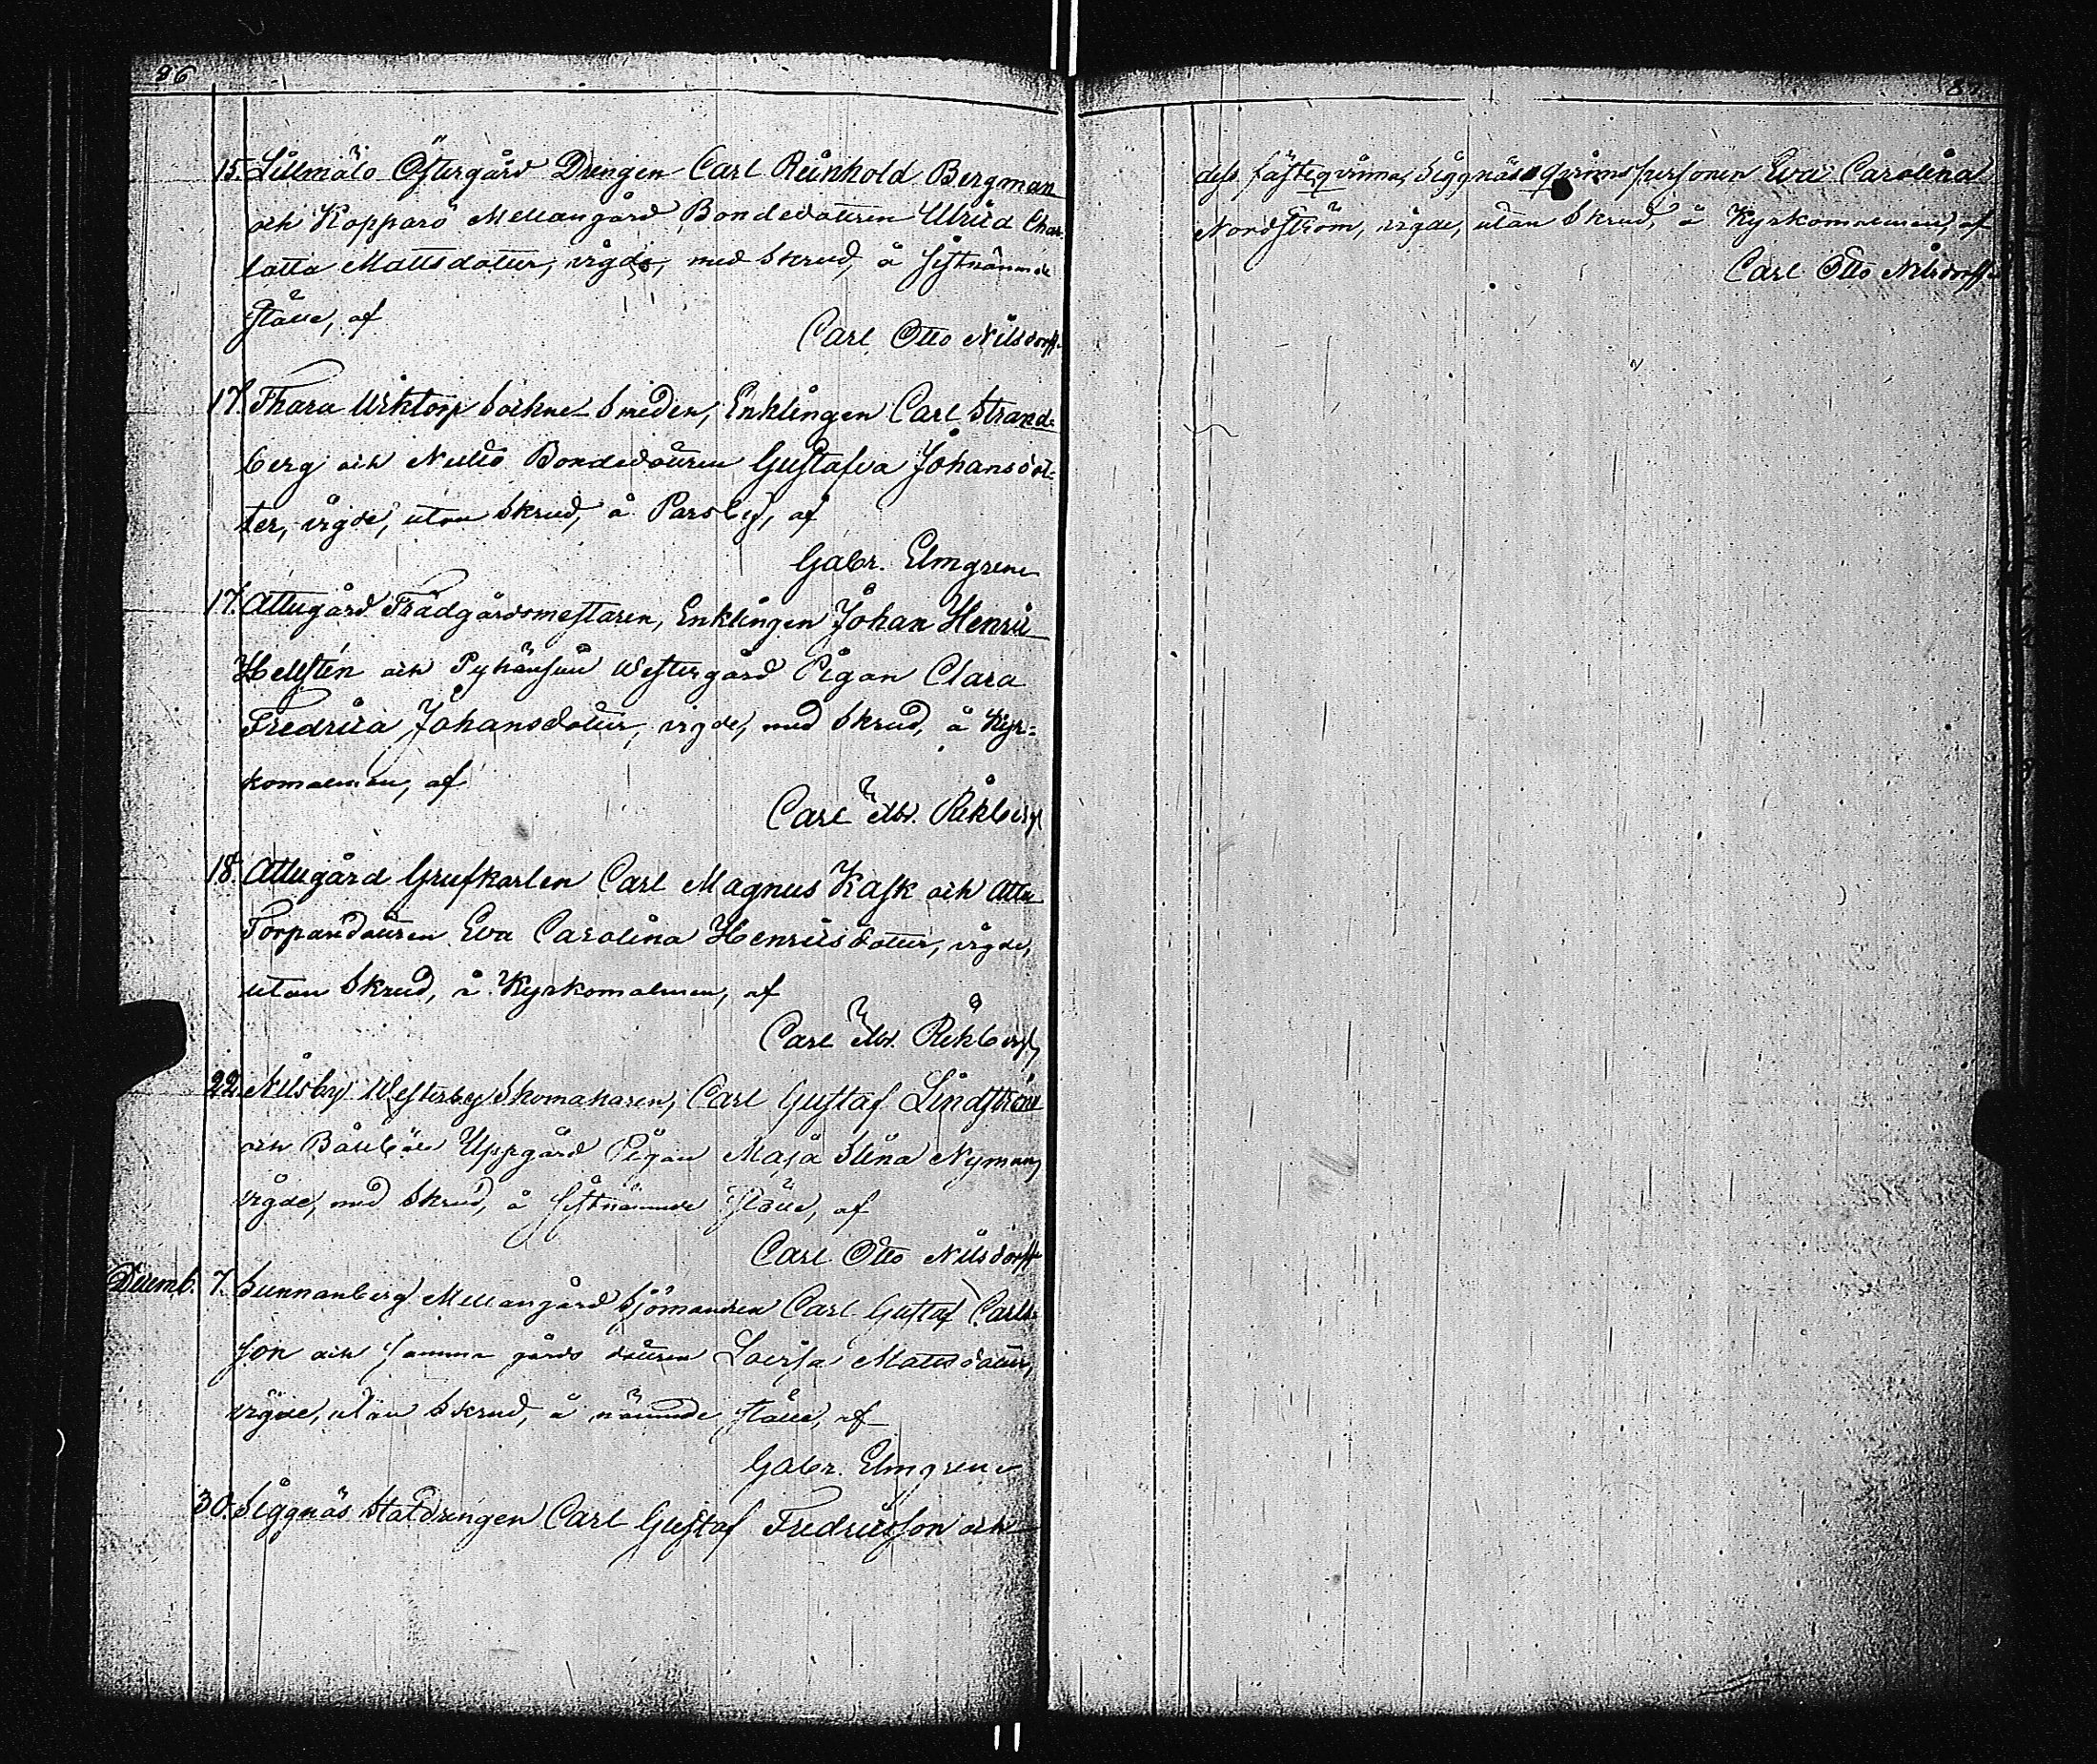 86
15. Lillmälö Östergård Drengen Carl Reinhold Bergman
och Kopparö Mellangård Bondedottren Ulrica Char-
lotta Mattsdotter, vigde, med Skrud, å sistnämnde
ställe, af
Carl Otto Nilsdorff.
17. Sockne-Smeden, Enklingen Carl Strand-
berg och Bondedottren Gustafva Johansdot-
ter, vigde, utan Skrud, å Parsby, af
Gabr. Elmgren
17. Attugård Trädgårdsmestaren, Enklingen Johan Henric
Hellstén och Westergård Pigan Clara
Fredrica Johansdotter, vigde, med Skrud, å Kyr-
komalmen, af
Carl
18. Attugård Grufkarlen Carl Magnus Kask och Attu
Torparedottren Eva Carolina Henricsdotter, vigde,
utan Skrud, å Kyrkomalmen, af
Carl
22. Nilsby Westerby Skomakaren, Carl Gustaf Lindström
och Uppgård Pigan Maja Stina Nyman,
vigde, med Skrud, å sistnämnde ställe, af
Carl Otto Nilsdorff
Decemb. 7. Sunnanberg Mellangård Sjömannen Carl Gustaf Carls-
son och samma gårds dottren Lovisa Mattsdotter,
vigde, utan Skrud, å nämnde ställe, af
Gabr. Elmgren
30. Siggnäs Statdrengen Carl Gustaf Fredricsson och
87
dess fästeqvinna, Siggnäs qvinnspersonen Eva Carolina
Nordström, vigde, utan Skrud, å Kyrkomalmen, af
Carl Otto Nilsdorff